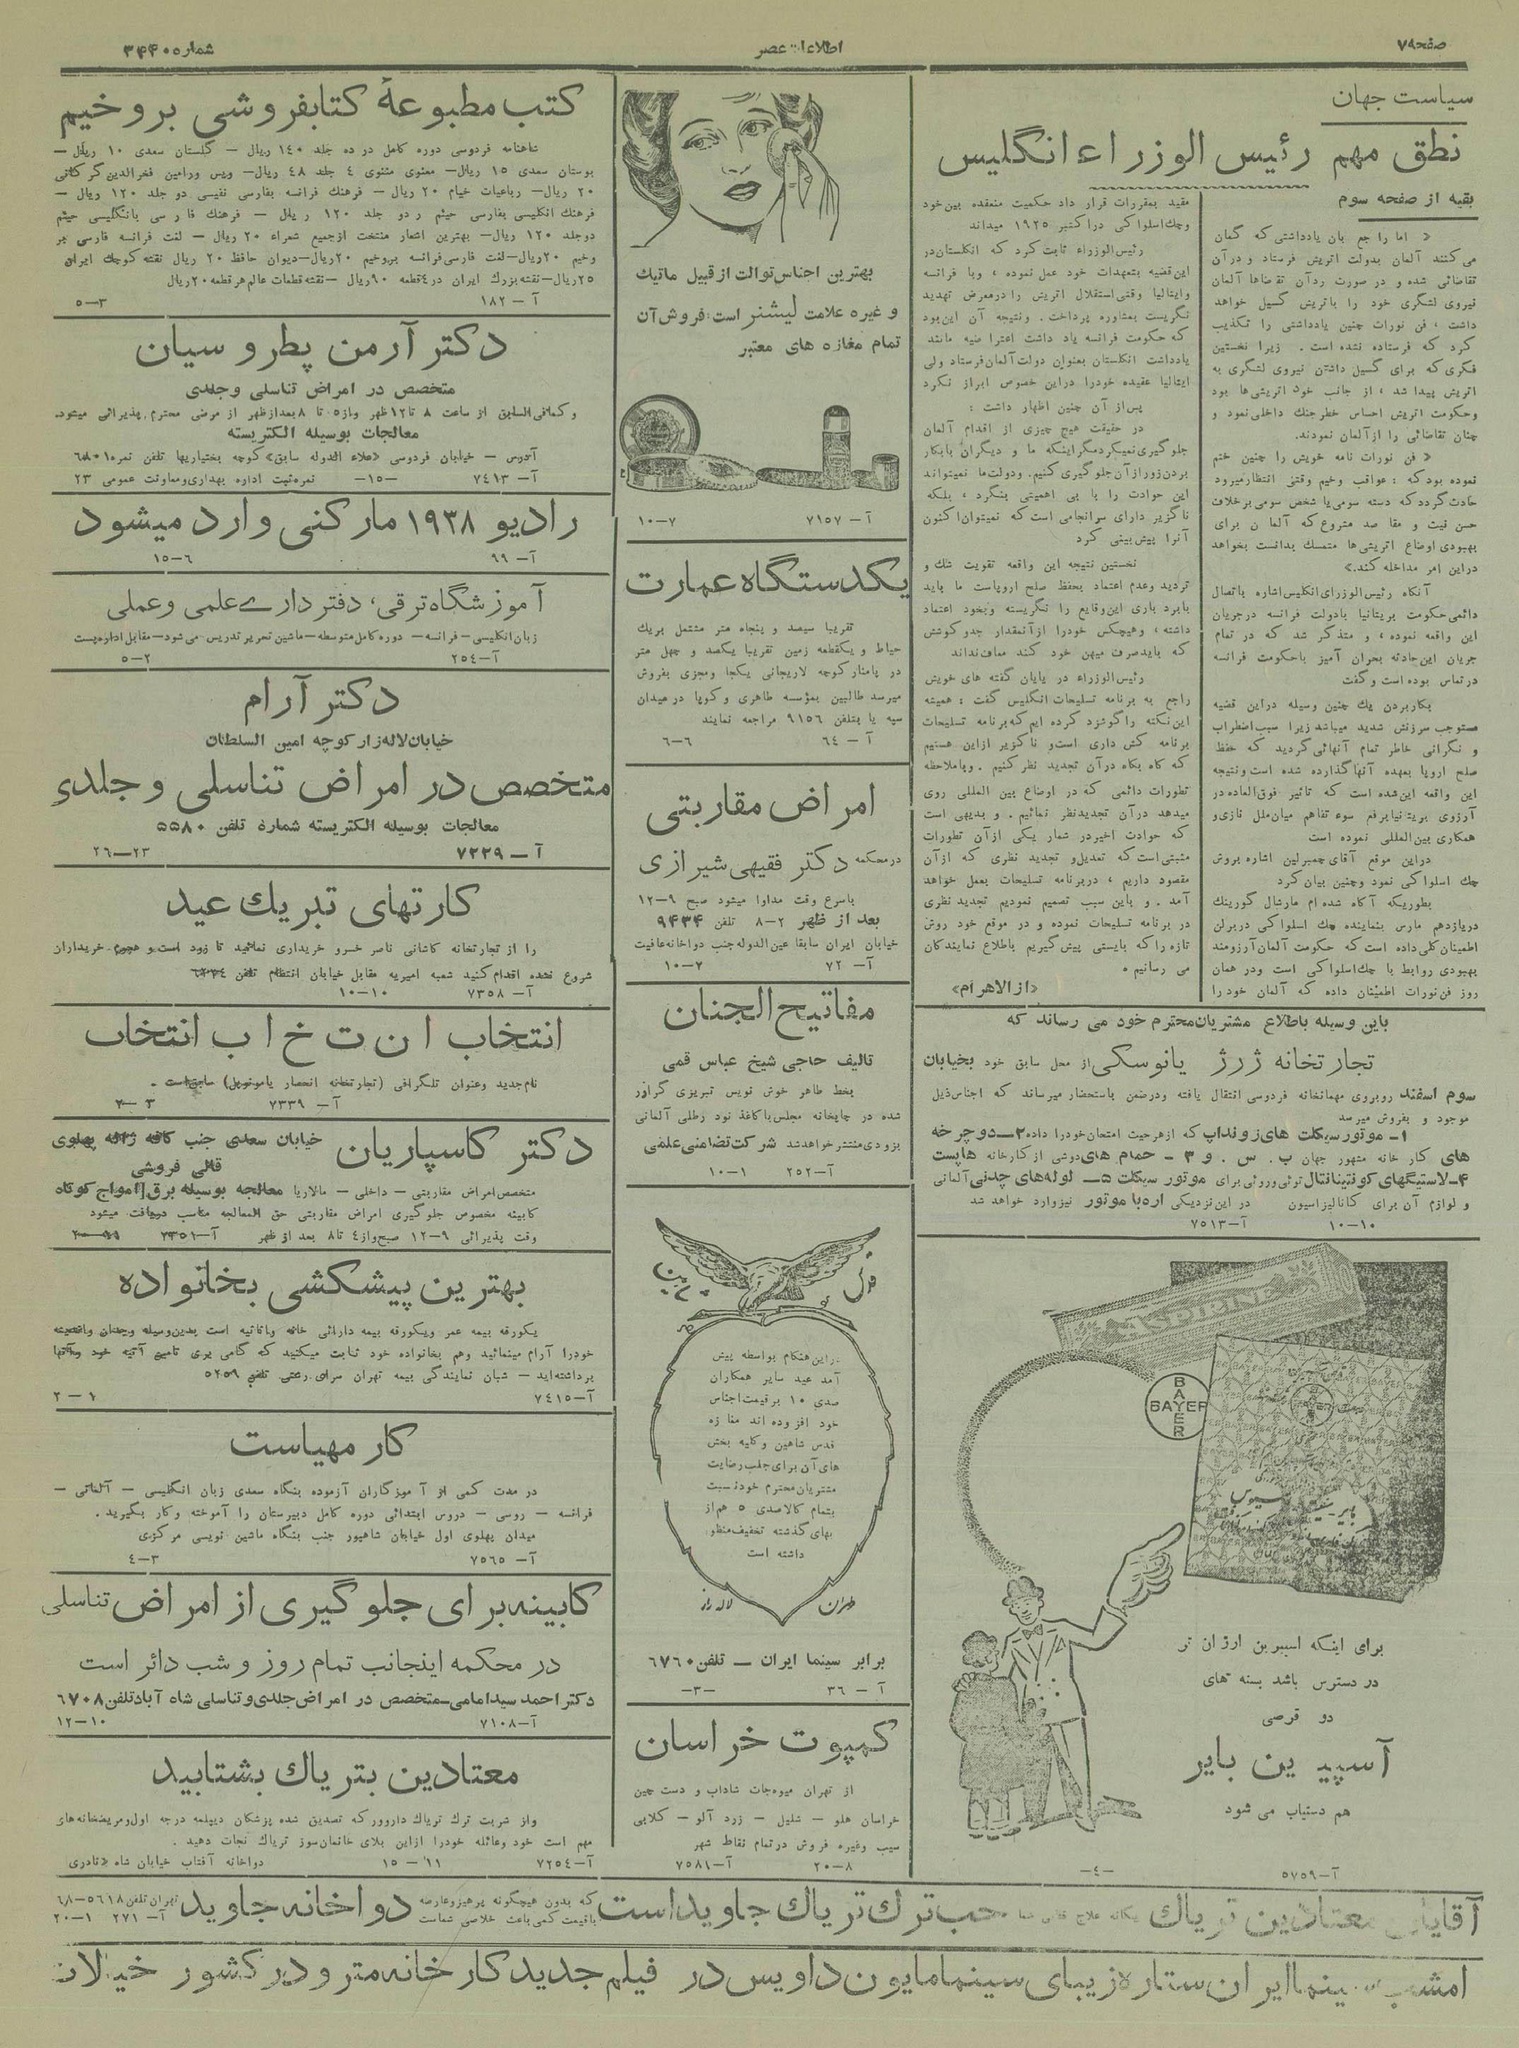 صفحه ۷۹
اطلاعات عصر
شماره ۳۴۴۰
سیاست جهان
نطق مهم رئیس الوزراء انگلیس
بقیه از صفحه سوم
« اما راجع بان یادداشتی که گمان
می کنند آلمان بدولت اتریش فرستاد و در آن
تقاضائی شده و در صورت رد آن تقاضاها آلمان
نیروی لشگری خود را باتریش گسیل خواهد
داشت ، فن نورات چنین یادداشتی را تکذیب
کرد که فرستاده نشده است . زیرا نخستین
فکری که برای گسیل داشتن نیروی لشگری به
اتریش پیدا شد ، از جانب خود اتریشی‌ها بود
و حکومت اتریش احساس خطر جنك داخلی نمود و
چنان تقاضائی را از آلمان نمودند.
« فن نورات نامه خویش را چنین ختم
نموده بود که : عواقب وخیم وقتی انتظار میرود
حادث گردد که دسته سومی یا شخص سومی بر خلاف
حسن نیت و مقاصد مشروع که آلمان برای
بهبودی اوضاع اتریشی‌ها متمسك بدانست بخواهد
در این امر مداخله کند.»
آنگاه رئیس الوزرای انگلیس اشاره باتصال
دائمی حکومت بریتانیا بادولت فرانسه در جریان
این واقعه نموده ، و متذکر شد که در تمام
جریان این حادثه بحران آمیز باحکومت فرانسه
در تماس بوده است و گفت
بکار بردن یك چنین وسیله در این قضیه
مستوجب سرزنش شدید میباشد زیرا سبب اضطراب
و نگرانی خاطر تمام آنهائی گردید که حفظ
صلح اروپا بعهده آنها گذارده شده است و نتیجه
این واقعه این شده است که تاثیر فوق العاده در
آرزوی بریتانیا برفع سوء تفاهم میان ملل نازی و
همکاری بین المللی نموده است
در این موقع آقای چمبرلین اشاره بروش
چك اسلواکی نمود و چنین بیان کرد
بطوریکه آگاه شده ام مارشال گورینك
در یازدهم مارس بنماینده چك اسلواکی در برلن
اطمینان کلی داده است که حکومت آلمان آرزومند
بهبودی روابط با چك اسلواکی است و در همان
روز فن نورات اطمینان داده که آلمان خود را
مقید بمقررات قرار داد حکمیت منعقده بین خود
و چك اسلواکی در اکتبر ۱۹۲۵ میداند
رئیس الوزراء ثابت کرد که انگلستان در
این قضیه بتعهدات خود عمل نموده ، و با فرانسه
و ایتالیا وقتی استقلال اتریش را در معرض تهدید
نگریست بمشاوره پرداخت. و نتیجه آن این بود
که حکومت فرانسه یاد داشت اعتراضیه مانند
یادداشت انگلستان بعنوان دولت آلمان فرستاد ولی
ایتالیا عقیده خود را در این خصوص ابراز نکرد
پس از آن چنین اظهار داشت :
در حقیقت هیچ چیزی از اقدام آلمان
جلوگیری نمیکرد مگر اینکه ما و دیگران بابکار
بردن زور از آن جلوگیری کنیم. و دولت ما نمیتواند
این حوادث را با بی اهمیتی بنگرد ، بلکه
ناگزیر دارای سرانجامی است که نمیتوان اکنون
آنرا پیش بینی کرد
نخستین نتیجه این واقعه تقویت شك و
تردید و عدم اعتماد بحفظ صلح اروپاست ما باید
بابردباری این وقایع را نگریسته و بخود اعتماد
داشته ، و هیچکس خود را از آنمقدار جد و کوشش
که باید صرف میهن خود کند معاف نداند
رئیس الوزراء در پایان گفته های خویش
راجع به برنامه تسلیحات انگلیس گفت : همیشه
این نکته را گوشزد کرده ایم که برنامه تسلیحات
برنامه کش داری است و ناگزیر از این هستیم
که گاه بگاه در آن تجدید نظر کنیم . و باملاحظه
تطورات دائمی که در اوضاع بین المللی روی
میدهد در آن تجدید نظر نمائیم . و بدیهی است
که حوادث اخیر در شمار یکی از آن تطورات
مثبتی است که تعدیل و تجدید نظری که از آن
مقصود داریم ، در برنامه تسلیحات بعمل خواهد
آمد . و باین سبب تصمیم نمودیم تجدید نظری
در برنامه تسلیحات نموده و در موقع خود روش
تازه را که بایستی پیش گیریم باطلاع نمایندگان
می رسانیم .
«از الاهرام»
باین وسیله باطلاع مشتریان محترم خود می رساند که
تجارتخانه ژرژ یانوسکی از محل سابق خود بخیابان
سوم اسفند روبروی مهمانخانه فردوسی انتقال یافته و در ضمن باستحضار میرساند که اجناس ذیل
موجود و بفروش میرسد
۱- موتورسیکلت های زونداپ که از هر حیث امتحان خود را داده ۲- دوچرخه
های کارخانه مشهور جهان ب . س . و ۳ - حمام های دوشی از کارخانه هاپست
۴-لاستیگهای کونتیناتال توئی و روئی برای موتور سیکلت ۵- لوله‌های چدنی آلمانی
و لوازم آن برای کانالیزاسیون در این نزدیکی اره با موتور نیز وارد خواهد شد
آ-۷۵۱۳ ۱۰-۱۰
ASPIRINE
BAYER
BAYER
برای اینکه اسپیرین ارزان تر
در دسترس باشد بسته های
دو قرصی
آسپیرین بایر
هم دستیاب می شود
آ-۵۷۵۹ -۴-
بهترین اجناس توالت از قبیل ماتیك
و غیره علامت لیشنر است : فروش آن
تمام مغازه های معتبر
آ- ۷۱۵۷ ۷-۱۰
یکدستگاه عمارت
تقریبا سیصد و پنجاه متر مشتمل بریك
حیاط و یکقطعه زمین تقریبا یکصد و چهل متر
در پامنار کوچه لاریجانی یکجا و مجزی بفروش
میرسد طالبین بمؤسسه طاهری و کوپا در میدان
سپه یا بتلفن ۹۱۵۶ مراجعه نمایند
آ - ۶۴ ۶-۶
امراض مقاربتی
در محکمه دکتر فقیهی شیرازی
باسرع وقت مداوا میشود صبح ۹-۱۲
بعد از ظهر ۲-۸ تلفن ۹۴۳۴
خیابان ایران سابقا عین الدوله جنب دواخانه عافیت
آ- ۷۲ ۷-۱۰
مفاتیح الجنان
تالیف حاجی شیخ عباس قمی
بخط طاهر خوش نویس تبریزی گراور
شده در چاپخانه مجلس با کاغذ نود رطلی آلمانی
بزودی منتشر خواهد شد شرکت تضامنی علمی
آ-۲۵۲ ۱-۱۰
در این هنگام بواسطه پیش
آمد عید سایر همکاران
صدی ۱۰ بر قیمت اجناس
خود افزوده اند مغازه
قدس شاهین و کلیه بخش
های آن برای جلب رضایت
مشتریان محترم خود نسبت
بتمام کالا صدی ۵ هم از
بهای گذشته تخفیف منظور
داشته است
طهران لاله زار
برابر سینما ایران – تلفن ۶۷۶۰
آ - ۳۶ -۳-
کمپوت خراسان
از تهران میوه جات شاداب و دست چین
خراسان هلو – شلیل – زرد آلو – گلابی
سیب و غیره فروش در تمام نقاط شهر
آ-۷۵۸۱ ۸-۲۰
کتب مطبوعهٔ کتابفروشی بروخیم
شاهنامه فردوسی دوره کامل در ده جلد ۱۴۰ ریال – گلستان سعدی ۱۰ ریال –
بوستان سعدی ۱۵ ریال– معنوی مثنوی ۴ جلد ۴۸ ریال– ویس ورامین فخرالدین گرگانی
۲۰ ریال– رباعیات خیام ۲۰ ریال– فرهنك فرانسه بفارسی نفیسی دو جلد ۱۲۰ ریال –
فرهنك انگلیسی بفارسی حیئم در دو جلد ۱۲۰ ریال – فرهنك فارسی بانگلیسی حیئم
دوجلد ۱۲۰ ریال– بهترین اشعار منتخب از جمیع شعراء ۲۰ ریال – لغت فرانسه فارسی بر
وخیم ۲۰ریال–لغت فارسی فرانسه بروخیم ۲۰ریال–دیوان حافظ ۲۰ ریال نقشه کوچك ایران
۲۵ریال– نقشه بزرك ایران در ٤قطعه ۹۰ریال – نقشه قطعات عالم هر قطعه ۲۰ریال
آ – ۱۸۲ ۳-۵
دکتر آرمن پطروسیان
متخصص در امراض تناسلی و جلدی
و کمافی السابق از ساعت ۸ تا ۱۲ ظهر و از ۵ تا ۸ بعد از ظهر از مرضی محترم پذیرائی میشود.
معالجات بوسیله الکتریسته
آدرس – خیابان فردوسی «علاء الدوله سابق» کوچه بختیاریها تلفن نمره ۶۸۰۱
آ- ۷۴۱۳ -۱۵- نمره ثبت اداره بهداری و معاونت عمومی ۲۳
رادیو ۱۹۳۸ مارکنی وارد میشود
آ- ۹۹ ۶-۱۵
آموزشگاه ترقی ، دفتر داری علمی و عملی
زبان انگلیسی – فرانسه – دوره کامل متوسطه – ماشین تحریر تدریس می شود – مقابل اداره پست
آ-۲۵٤ ۲-۵
دکتر آرام
خیابان لاله زار کوچه امین السلطان
متخصص در امراض تناسلی و جلدی
معالجات بوسیله الکتریسته شماره تلفن ۵۵۸۰
آ - ۷۲۲۹ ۲۳-۲۶
کارتهای تبریك عید
را از تجارتخانه کاشانی ناصر خسرو خریداری نمائید تا زود است و هجوم خریداران
شروع نشده اقدام کنید شعبه امیریه مقابل خیابان انتظام تلفن
آ- ۷۳۵۸ ۱۰-۱۰
انتخاب ا ن ت خ ا ب انتخاب
نام جدید و عنوان تلگرافی (تجارتخانه انحصار یا مونوپل) سابق است -
آ- ۷۳۳۹ ۳-
دکتر کاسپاریان خیابان سعدی جنب کافه ژاله پهلوی
قالی فروشی
متخصص امراض مقاربتی – داخلی – مالاریا معالجه بوسیله برق [امواج کوتاه
کابینه مخصوص جلوگیری امراض مقاربتی حق المعالجه مناسب دریافت میشود
وقت پذیرائی ۹-۱۲ صبح و از ٤ تا ۸ بعد از ظهر آ-۲۳۵۱
بهترین پیشکشی بخانواده
یکورقه بیمه عمر و یکورقه بیمه دارائی خانه و اثاثیه است بدین وسیله وجدان
خود را آرام مینمائید و هم بخانواده خود ثابت میکنید که گامی برای تامین آتیه خود و آنها
برداشته اید – شبان نمایندگی بیمه تهران سرای رشتی تلفن ۵۲۵۹
آ- ۷٤۱۵ ۱ - ۲
کار مهیاست
در مدت کمی از آموزگاران آزموده بنگاه سعدی زبان انگلیسی – آلمانی –
فرانسه – روسی – دروس ابتدائی دوره کامل دبیرستان را آموخته و کار بگیرید.
میدان پهلوی اول خیابان شاهپور جنب بنگاه ماشین نویسی مرکزی
آ- ۷۵۶۵ ۳-٤
کابینه برای جلوگیری از امراض تناسلی
در محکمه اینجانب تمام روز و شب دائر است
دکتر احمد سید امامی-متخصص در امراض جلدی و تناسلی شاه آباد تلفن ۶۷۰۸
آ-۷۱۰۸ ۱۰-۱۲
معتادین بتریاك بشتابید
و از شربت ترك تریاك داروور که تصدیق شده پزشکان دیپلمه درجه اول و مریضخانه های
مهم است خود و عائله خود را از این بلای خانمان سوز تریاك نجات دهید .
آ-۷۲۵٤ ۱۱ - ۱۵ دواخانه آفتاب خیابان شاه «نادری
آقایان معتادین تریاك یگانه علاج قطعی شما حب ترك تریاك جاوید است که بدون هیچگونه پرهیز و عارضه باقیمت کمی باعث خلاصی شماست دواخانه جاوید تهران تلفن ۵۶۱۸-۶۸ آ- ۲۷۱ ۱-۲۰
امشب سینما ایران ستاره زیبای سینما مایون داویس در فیلم جدید کارخانه مترو در کشور خیالات